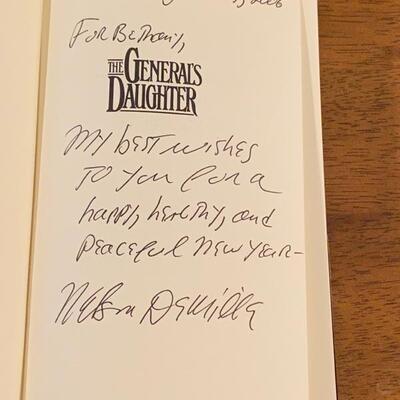 For Bethany,
THE GENERAL'S
DAUGHTER
My best wishes
To you for a
happy, healthy, and
peaceful New Year—
Nelson DeMille